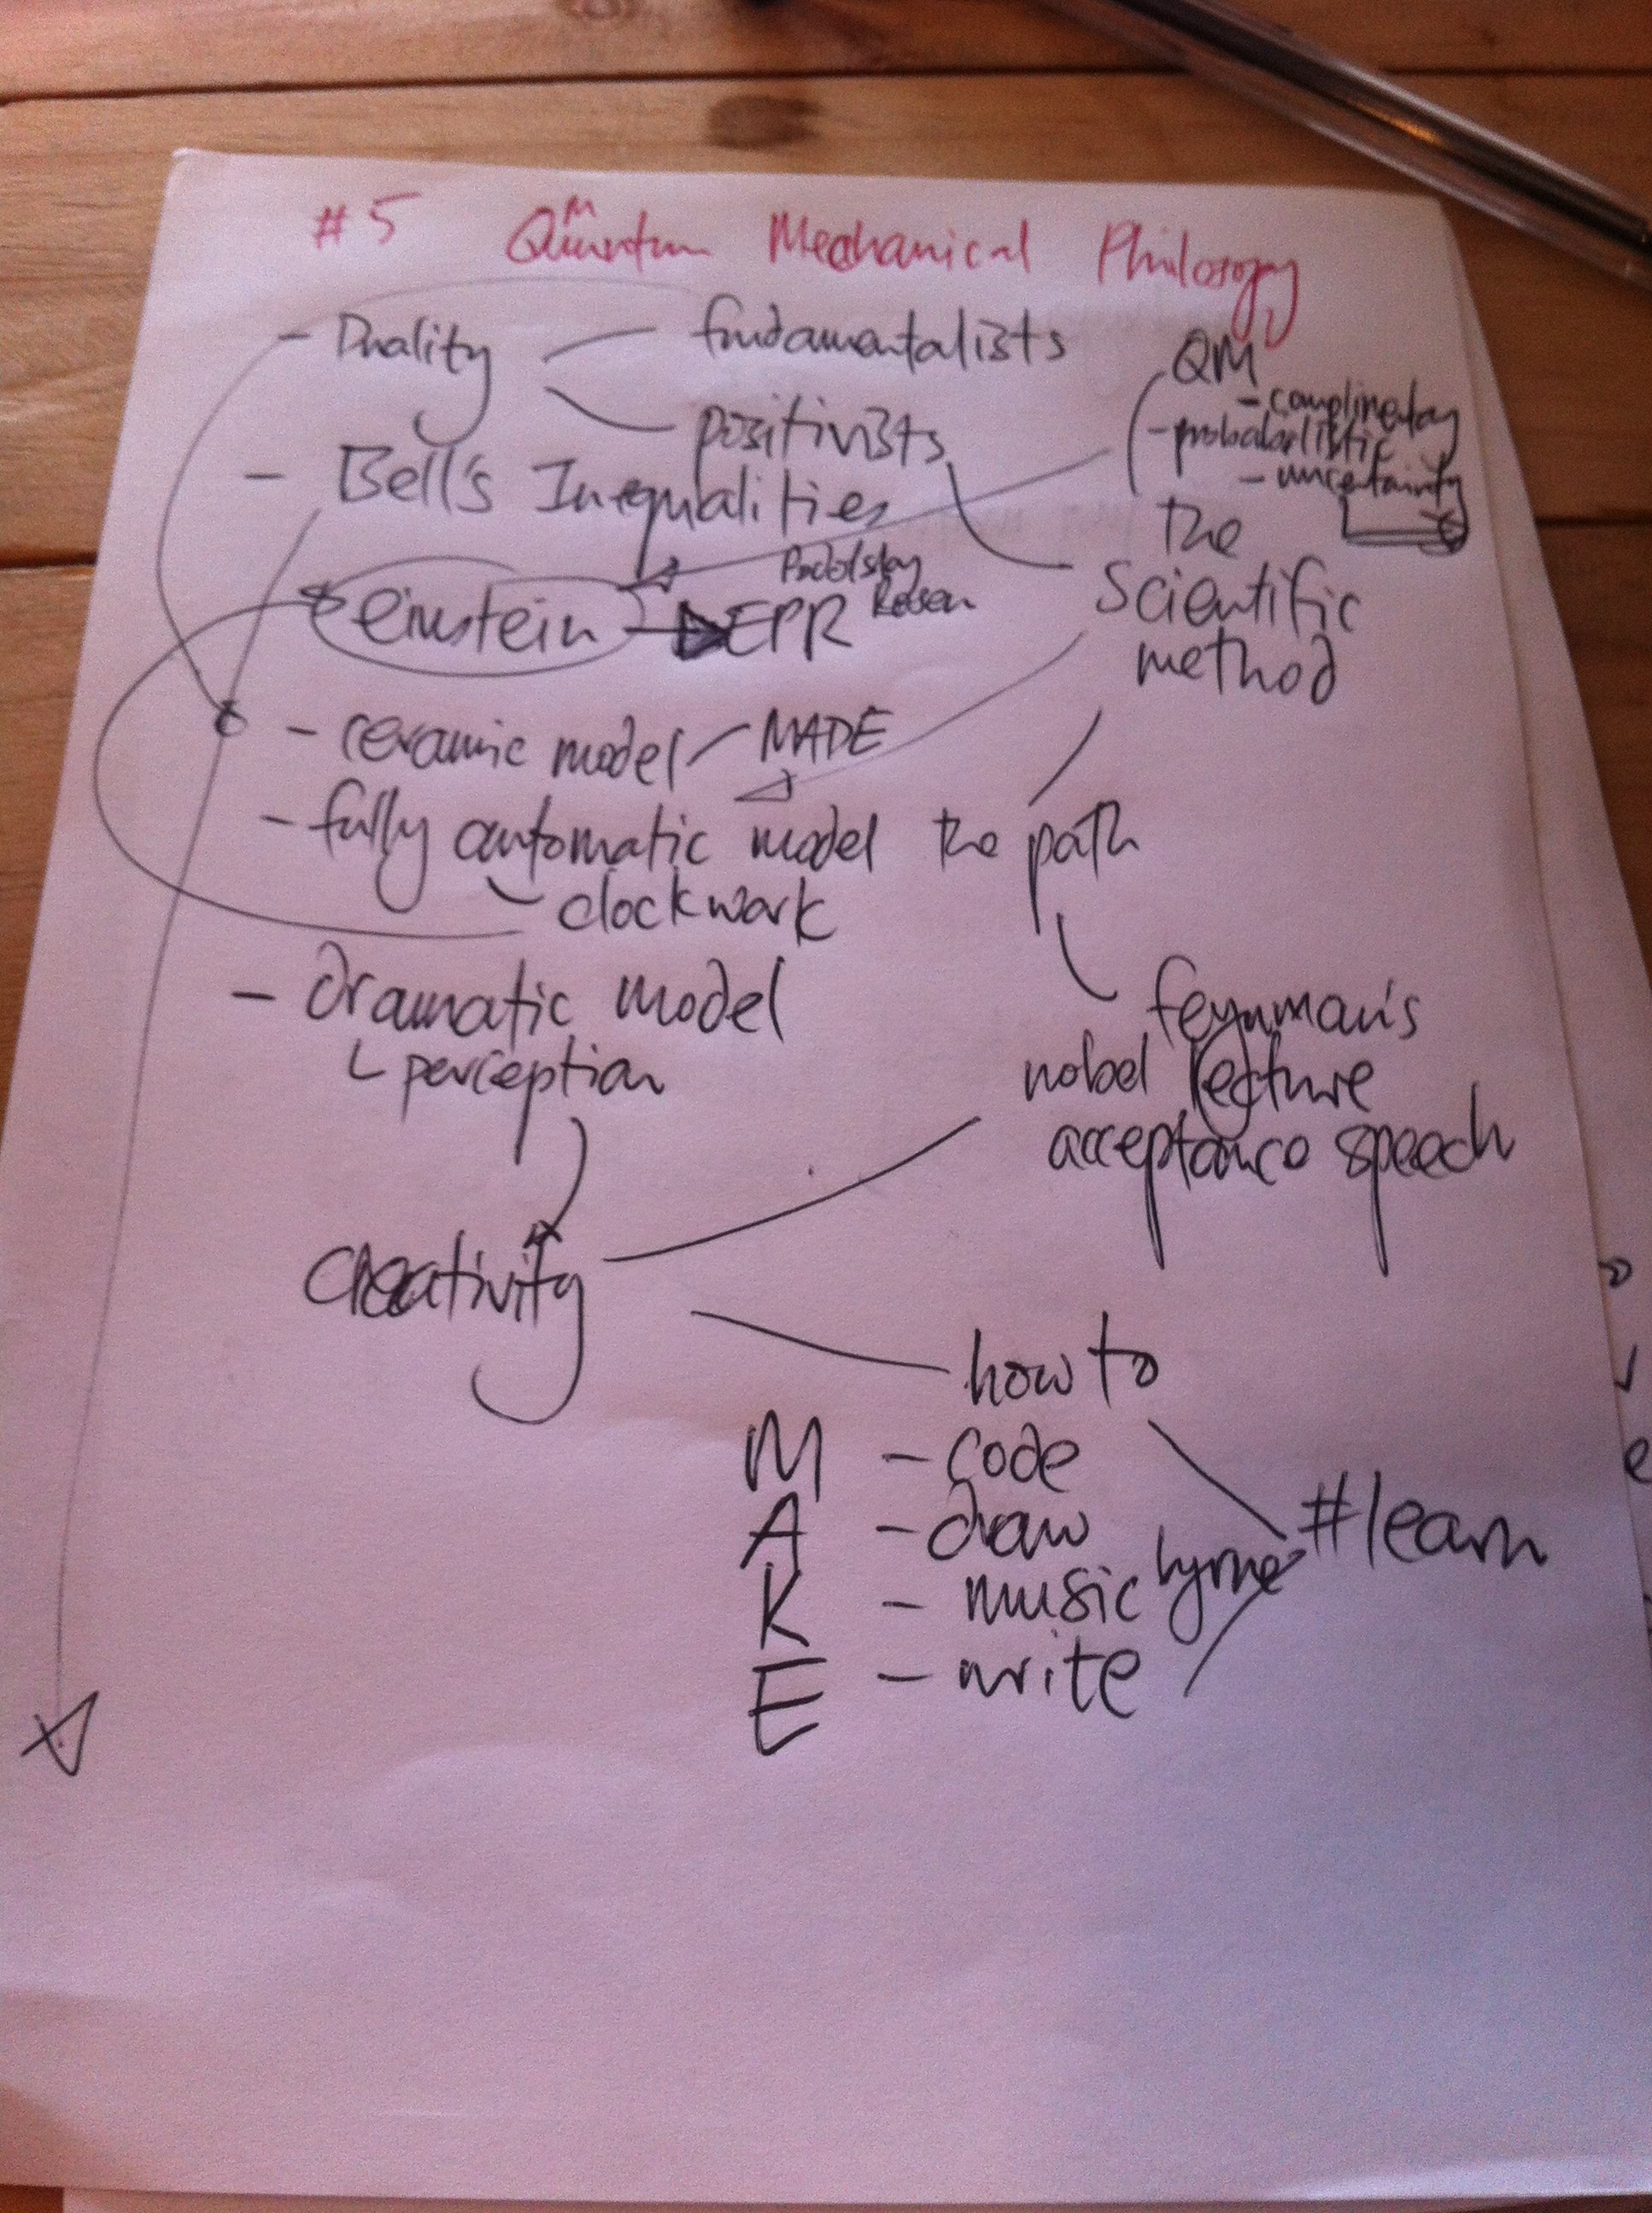 #5 Quantum Mechanical Philosopy
- Duality
fundamentalists
positivists
QM
- complimentay
- probabalistic
- uncertainity
- Bell's Inequalities
the
Scientific
method
einstein
EPR
Podolsky
Rosen
- ceramic model
MADE
- fully automatic model
clockwork
the path
- dramatic model
perception
feynman's
nobel lecture
acceptance speech
Creativity
how to
M
A
K
E
- code
- draw
- music
- write
#learn